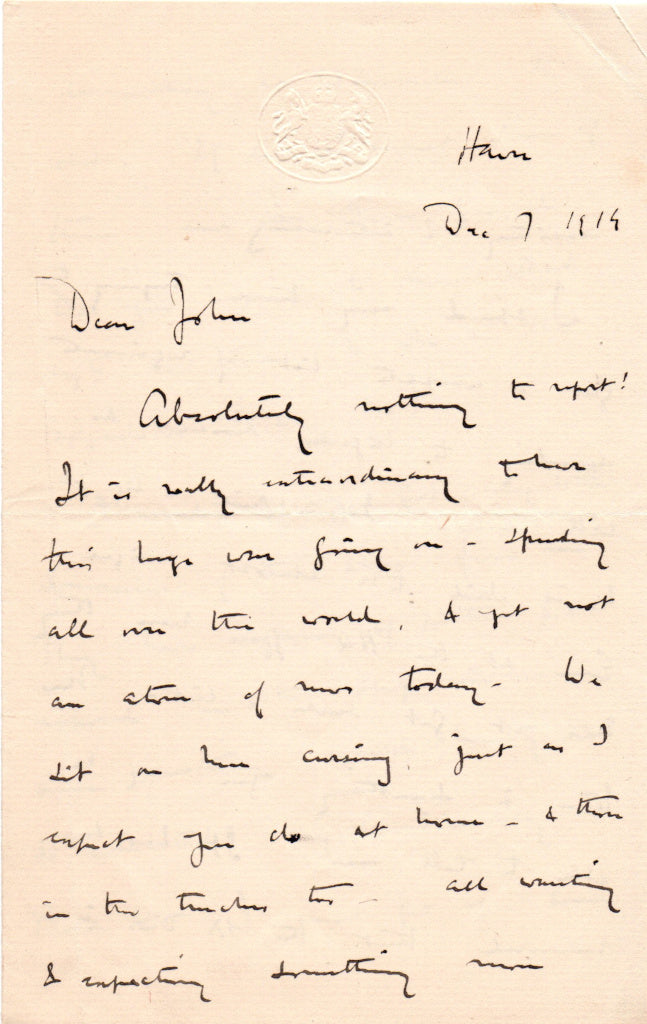 Havre
Dec 7 1914
Dear John
Absolutely nothing to report!
It is really extraordinary to have
this huge war going on – spreading
all over the world, & yet not
an atom of news today – We
sit on here cursing, just as I
expect you do at home – & those
in the trenches too – all wanting
& expecting something more